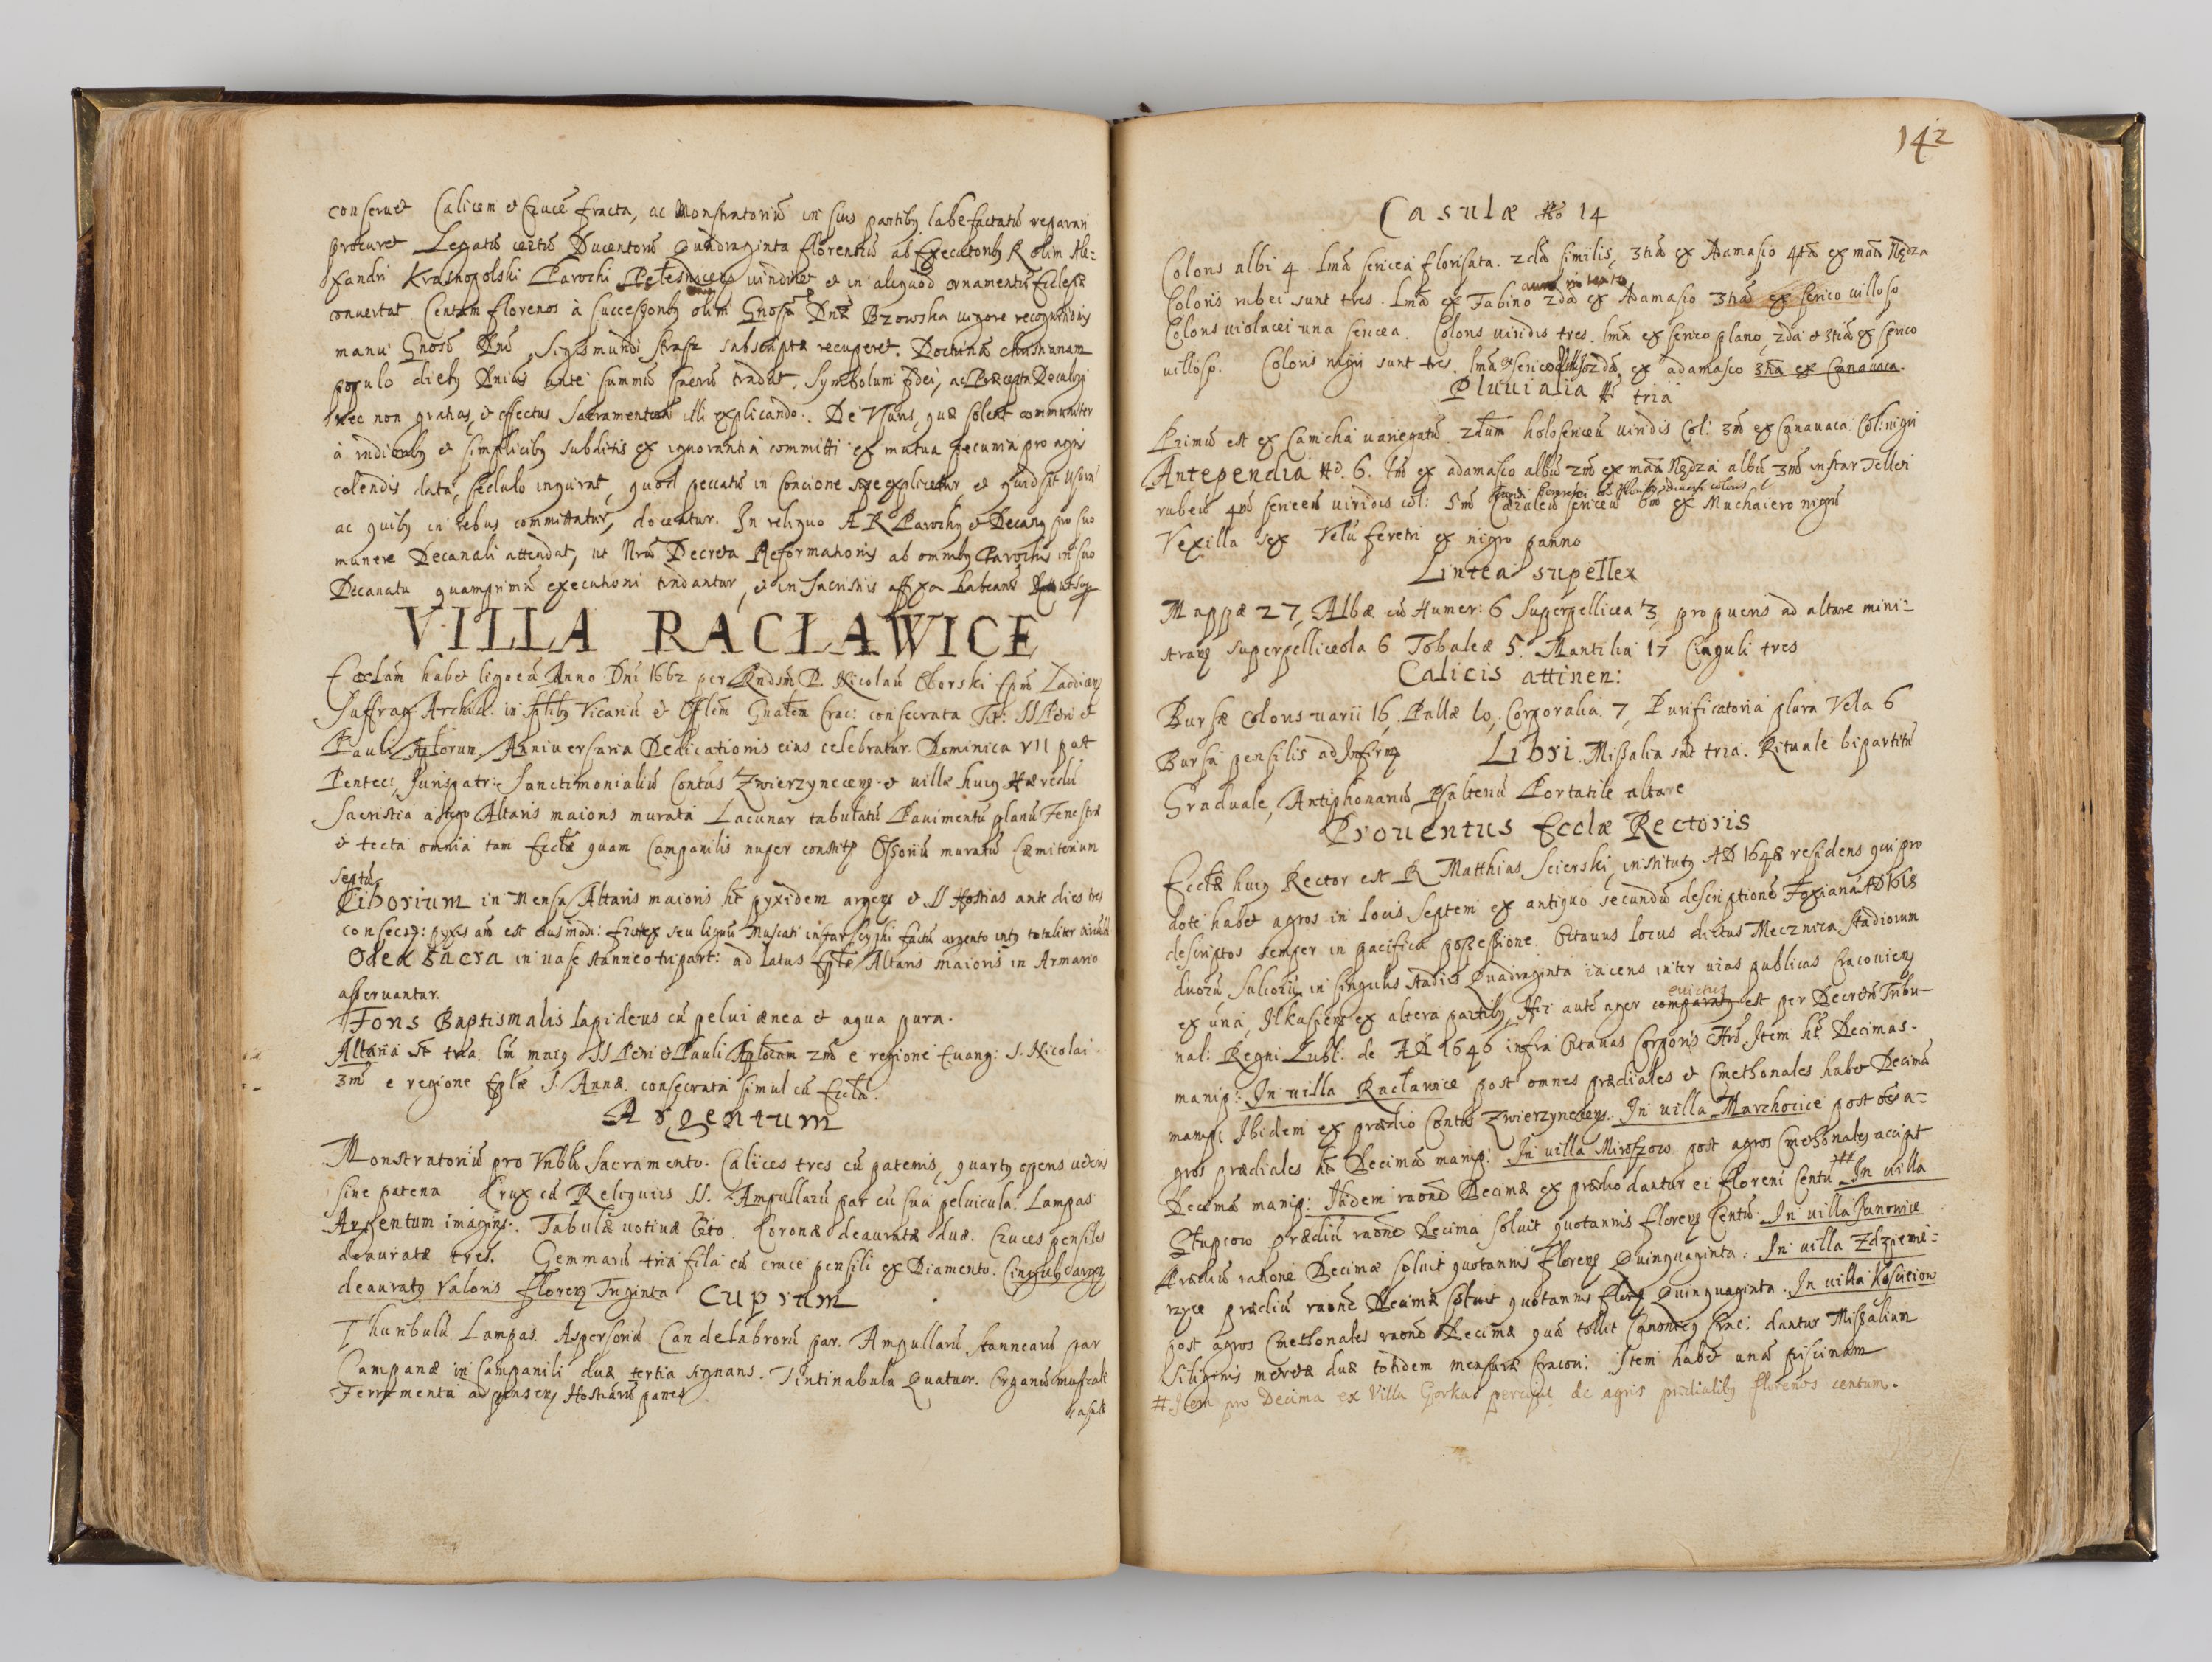 conseruet Calicem et Crucē fracta, ac Monstratoriū in suis partibʒ labefactatū reparari
procuret Legatū certū Ducentorū Quadraginta florenorū ab Executoribʒ R olim Ale-
xandri Krasnopolski Parochi vindicet et in aliquod ornamentū Ecclesiæ
conuertat. Centum florenos à successoribʒ olim Gnosæ Dnæ Bzowska vigore recognitionis
manu Gnosi Dni Sigismundi subscriptæ recuperet. Doctrinā christianam
populo diebʒ Dnicis ante summū sacrū tradat, Symbolum fidei, ac Præcepta Decalogi
nec non gratias, et effectus Sacramentorū illi explicando. De Vsuris, quæ solent communiter
à rudioribʒ et simplicibʒ subditis ex ignorantia committi ex mutua pecunia pro agris
colendis data, sedulo inquirat, quod peccatū in Concione sæpe explicetur, et quid sit vsura
ac quibʒ in rebus committatur, doceatur. In reliquo A R Parochʒ et Decanʒ pro suo
munere Decanali attendat, ut Nrā Decreta Reformationis ab omnibʒ Parochis in suo
Decanatu quamprimū executioni tradantur, et in Sacristiis affixa habeant
VILLA RACŁAWICE
Ecclām habet ligneā Anno Dni 1662 per Rndsm̄ P. Nicolaū Oborski Epm̄ Laodicenʒ
Suffrag: Archid: in sp̄libʒ Vicariū et Offlem Gnalem Crac: consecrata Tit: SS Petri et
Pauli Aplorum. Anniuersaria Dedicationis eius celebratur Dominica VII post
Pentec: Jurispatr: Sanctimonialiū Contūs Zwierzyncen. et villæ huiʒ Hæredū
Sacristia a tergo Altaris maioris murata Lacunar tabulatū Pauimentū planū Fenestræ
et tecta omnia tam Ecclæ quam Campanilis nuper constitʒ Ossoriū muratū Cæmiterium
septū
Ciborium in Mensa Altaris maioris ht pyxidem argenʒ et SS Hostias ante dies tres
consecr: pyxis aū est eiusmodi: frutex seu lignū Muscati instar scyphi factū argento intʒ totaliter
Olea sacra in uase stanneo tripart: ad latus Eplæ Altaris maioris in Armario
asseruantur.
Fons Baptismalis lapideus cū pelui ænea et aqua pura.
Altaria st tria. 1m̄ maiʒ SS Petri et Pauli Aplorum 2m̄ e regione Euang: S. Nicolai.
3m̄ e regione Eplæ S. Annæ. consecrata simul cū Eccla.
Argentum
Monstratoriū pro Vnblī Sacramento. Calices tres cū patenis, quartʒ egens
sine patena Crux cū Reliquiis SS. Ampullarū par cū sua peluicula. Lampas
Argentum imagins: Tabulæ uotiuæ Octo. Coronæ deauratæ duæ. Cruces pensiles
deauratæ tres. Gemmarū tria fila cū cruce pensili ex Diamento. Cingulʒ argʒ
deauratʒ valoris florenʒ Triginta
Cuprum
Thuribulū Lampas Aspersoriū Candelabrorū par. Ampullarū stannearū par
Campanæ in Campanili duæ tertia signans. Tintinabula Quatuor. Organū musicale
Ferramenta ad pinsenʒ Hostiarū panes
Casulæ
142
Casulæ No 14
Coloris albi 4 1ma sericea florisata. 2da similis, 3tia ex Adamasco 4ta ex mata Nędza
Coloris rubei sunt tres. 1ma ex Tabino 2da ex Adamasco 3tia ex serico villoso
Coloris violacei una sericea. Coloris uiridis tres. 1ma ex serico plano, 2da et 3tia ex serico
villoso. Coloris nigri sunt tres. 1ma 2da ex adamasco 3tia ex Canauaca.
Pluuialia No tria
Primū est ex Camcha uariegatū 2dum holosericeū uiridis Col: 3m̄ ex Canauaca Col: nigri
Antependia No. 6. 1m̄ ex adamasco albū 2m̄ ex mata Nędza albū 3m̄ instar Telleti
rubeū 4m̄ sericeū uiridis col: 5m̄ Cæruleū sericeū 6m̄ ex Muchaiero nigrū
Vexilla sex Velū feretri ex nigro panno
Lintea supellex
Mappæ 27, Albæ cū Humer: 6 Superpellicea 3, pro pueris ad altare mini-
stranʒ superpelliceola 6 Tobaleæ 5. Mantilia 17 Cinguli tres
Calicis attinen:
Bursæ Coloris varii 16, Pallæ 10, Corporalia 7, Purificatoria plura Vela 6
Bursa pensilis ad Infirmʒ Libri. Missalia sūt tria. Rituale bipartitū
Graduale, Antiphonariū Psalteriū Portatile altare
Prouentus Ecclæ Rectoris
Ecclæ huiʒ Rector est R Matthias Scierski, institutʒ AD 1648 residens qui pro
dote habet agros in locis Septem ex antiquo secundū descriptionē Foxianā AD 1618
descriptos semper in pacifica possessione. Octauus locus dictus Mecznica stadiorum
duorū sulcorū in singulis stadiis Quadraginta iacens inter uias publicas Cracouienʒ
euictus
ex una, Ilkusienʒ ex altera partibʒ, Hic autē ager comparatʒ est per Decretū Tribu-
nal: Regni Lubl: de AD 1646 infra Octauas Corporis Xti. Item ht Decimas
manip: In villa Racławice post omnes prædiales et Cmethonales habet Decimā
manip: Ibidem ex prædio Contūs Zwierzyncenʒ. In villa Marchocice post oēs a-
gros prædiales ht Decimā manip: In villa Miroszow post agros Cmethonales accipit
Decimā manip: Ibidem raōne Decimæ ex prædio dantur ei floreni Centū # In villa
Stupcow prædiū raōne Decimæ soluit quotannis florenʒ Centū. In villa Janowice
Prædiū ratione Decimæ soluit quotannis florenʒ Quinquaginta: In villa Zdziemi-
rzyce prædiū raōne Decimæ soluit quotannis florenʒ Quinquaginta. In villa Kosciejow
post agros Cmethonales raōne Decimæ quā tollit Canonicʒ Crac: dantur Missalium
Siliginis meretæ duæ totidem mensuræ Cracou: Item habet unā piscinam
# Item pro Decima ex Villa Gorka percipit de agris prædialibʒ florenos centum.